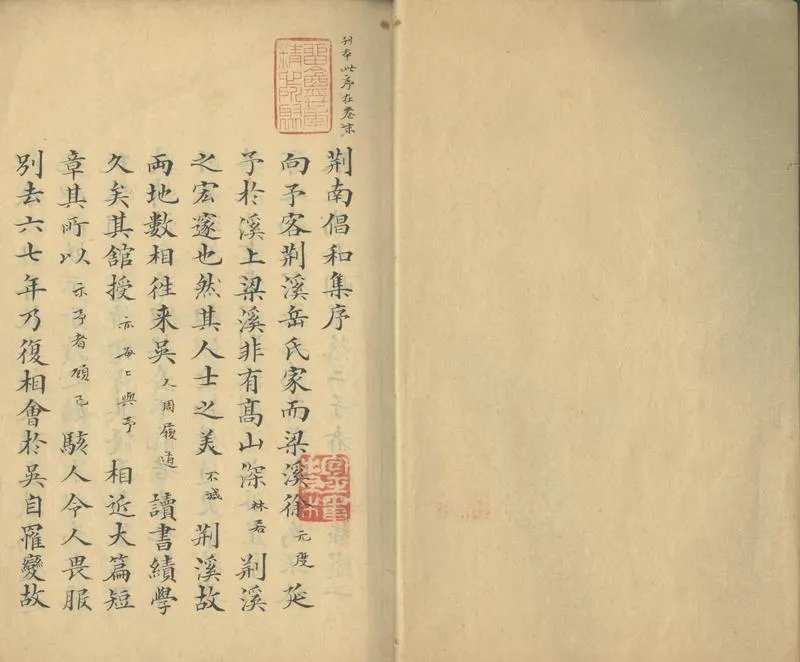 刊本此序在卷末
荆南倡和集序
向予客荆溪岳氏家而梁溪徐元度延
予於溪上梁溪非有髙山深林若荆溪
之宏邃也然其人士之美不减荆溪故
两地数相徃来吴人周履道讀書績學
久矣其舘授亦每與予相近大篇短
章其所以示予者頎已駭人令人畏服
别去六七年乃復相會於吴自罹變故